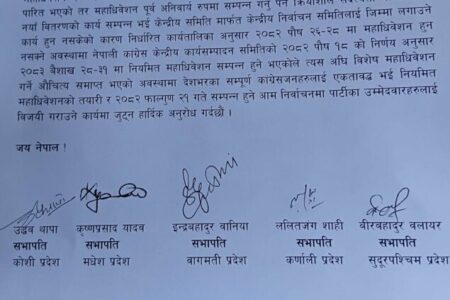 पारित भएको तर महाधिवेशन पूर्व अनिवार्य रुपमा सम्पन्न गर्नु पर्ने क्रियाशील
नयाँ वितरणको कार्य सम्पन्न भई केन्द्रीय समिति मार्फत केन्द्रीय निर्वाचन समितिलाई जिम्मा लगाउने
कार्य हुन नसकेको कारण निर्धारित कार्यतालिका अनुसार २०८२ पौष २६-२८ मा महाधिवेशन हुन
नसक्ने अवस्थामा नेपाली काग्रेस केन्द्रीय कार्यसम्पादन समितिको २०८२ पौष १८ को निर्णय अनुसार
२०८३ बैशाख २८-३१ मा नियमित महाधिवेशन सम्पन्न हुने भएकोले त्यस अघि विशेष महाधिवेशन
गर्ने औचित्य समाप्त भएको अवस्थामा देशभरका सम्पूर्ण काग्रेसजनहरुलाई एकतावद्ध भई नियमित
महाधिवेशनको तयारी र २०८२ फाल्गुण २१ गते सम्पन्न हुने आम निर्वाचनमा पार्टीका उम्मेदवारहरुलाई
विजयी गराउने कार्यमा जुट्न हार्दिक अनुरोध गर्दछौं ।
जय नेपाल !
उद्धव थापा कृष्णप्रसाद यादव इन्द्रबहादुर वानिया ललितजंग शाही बीरबहादुर वलायर
सभापति सभापति सभापति सभापति सभापति
कोशी प्रदेश मधेश प्रदेश वागमती प्रदेश कर्णाली प्रदेश सुदूरपश्चिम प्रदेश